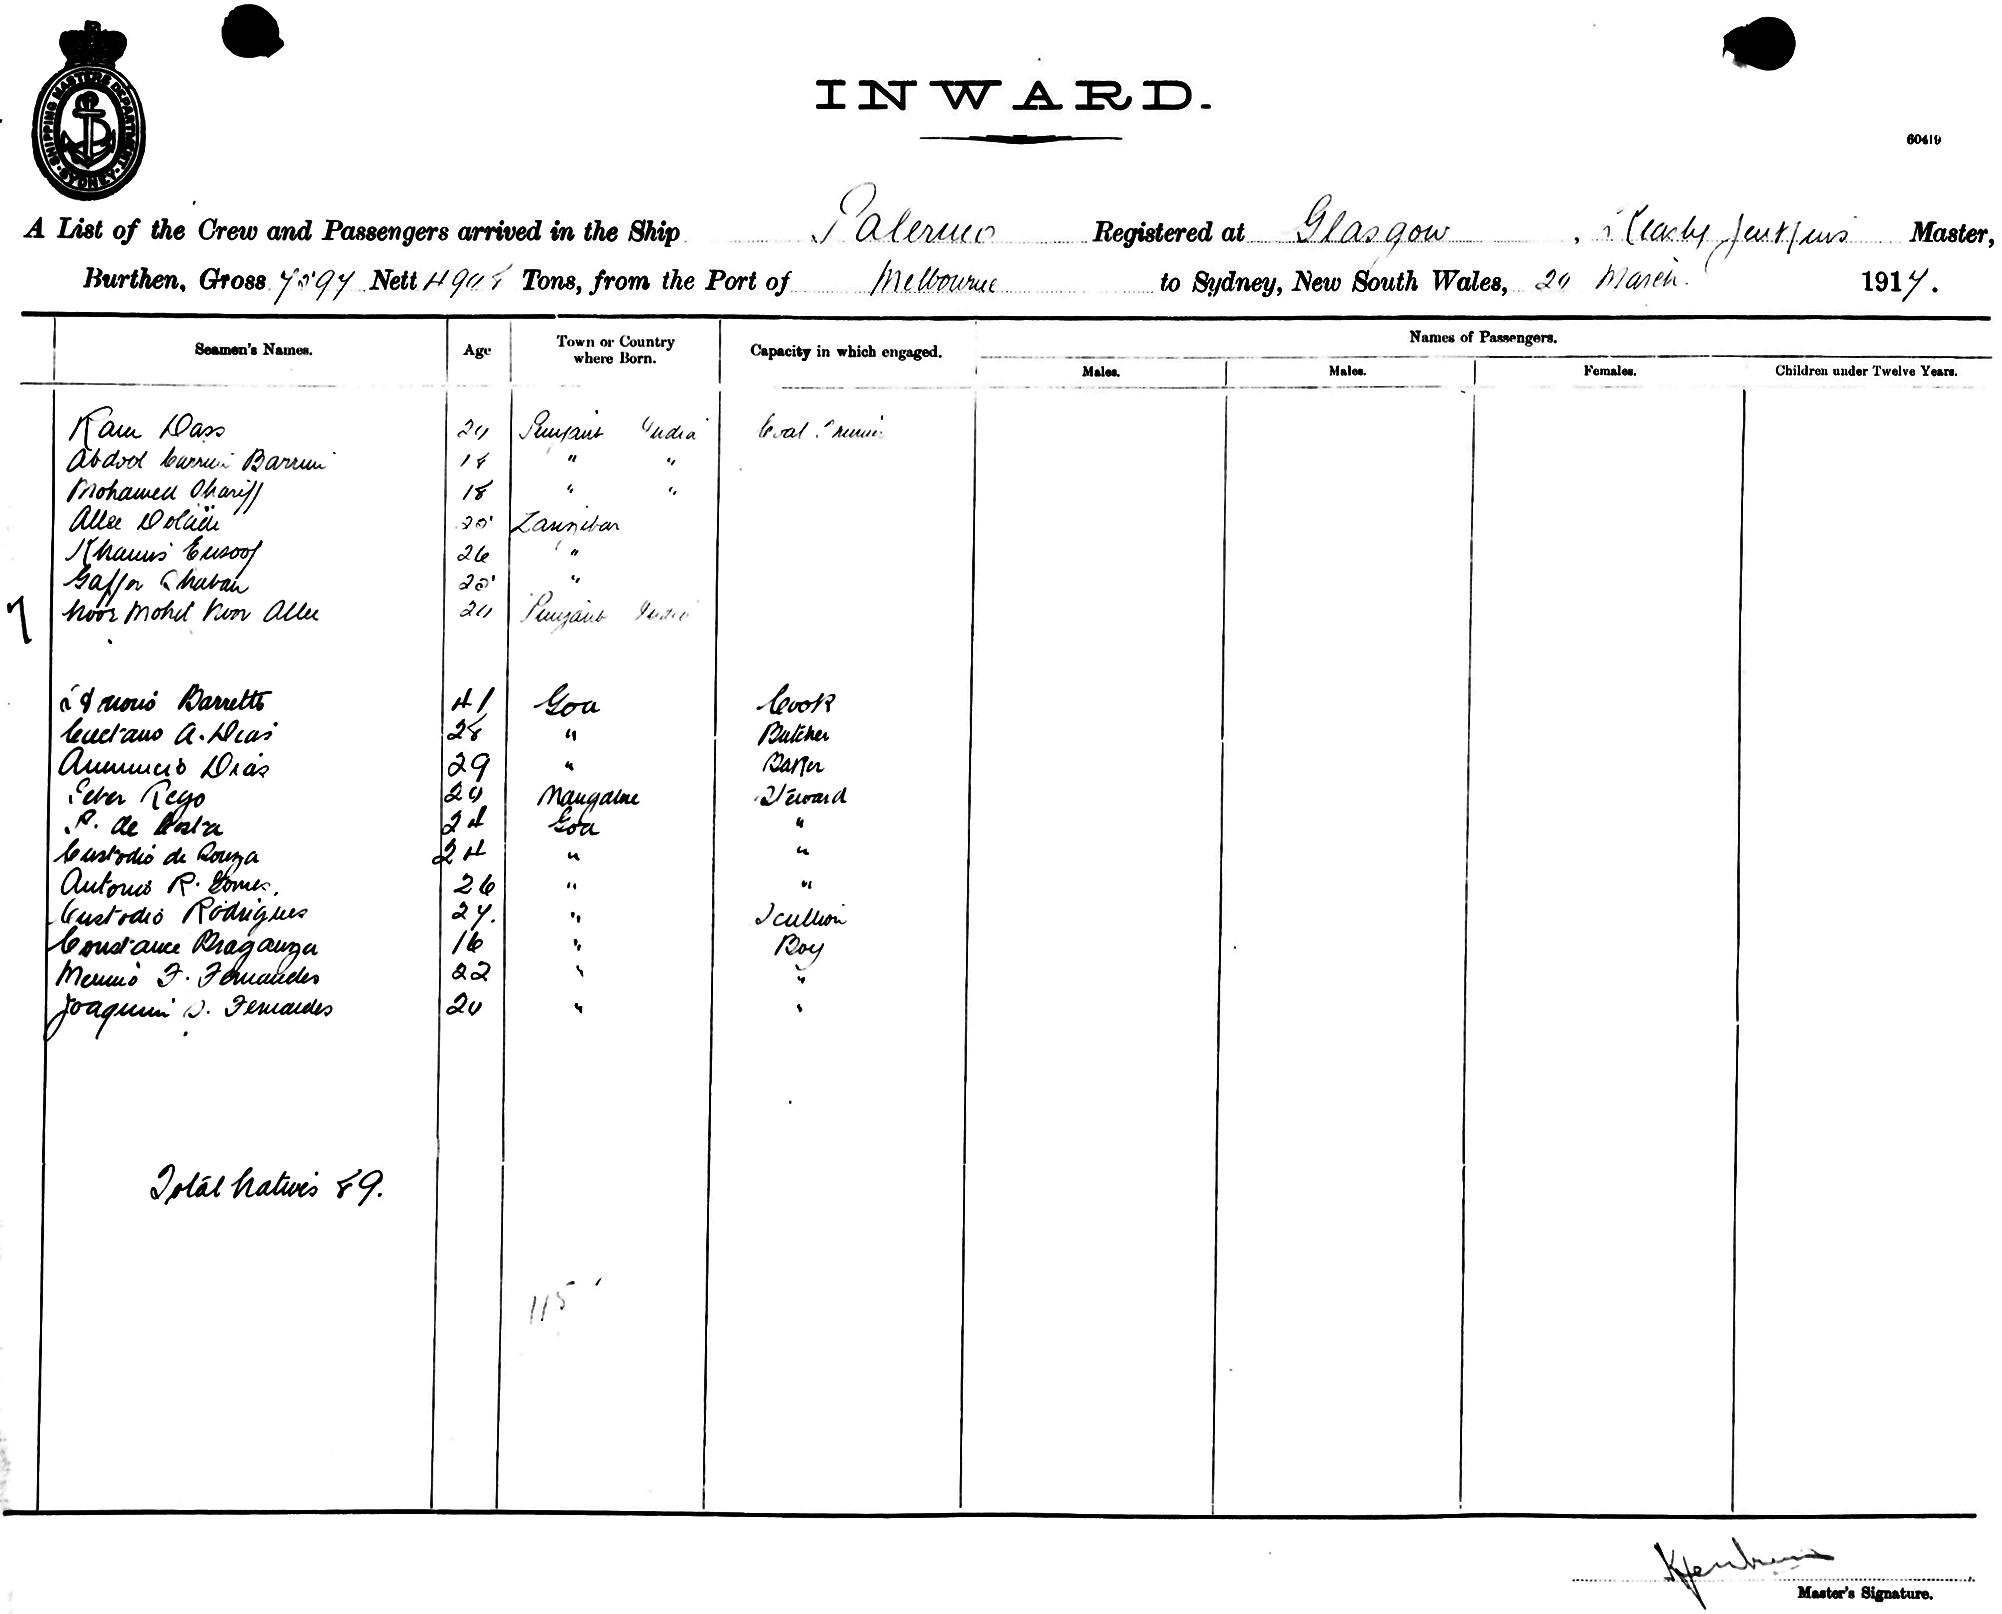 SHIPPING MASTERS DEPARTMENT · SYDNEY ·
INWARD.
60419
A List of the Crew and Passengers arrived in the Ship Palermo Registered at Glasgow, Jenkins Master,
Burthen, Gross 7597 Nett Tons, from the Port of Melbourne to Sydney, New South Wales, 20 March 1917.
Seamen's Names. Age Town or Country where Born. Capacity in which engaged. Names of Passengers.
Males. Males. Females. Children under Twelve Years.
Ram Dass 20 Punjaub India Coal
Abdool Barrim 18 " "
Mohamed Shariff 18 " "
Allee 25 Zanzibar
Khamis Eusoof 26 "
Gaffor Shaban 25 "
7 Noor Mohd Noor Allee 20 Punjaub India
Barretto 41 Goa Cook
Caetano A. Dias 28 " Butcher
Anuncio Dias 29 " Baker
Peter Rego 20 Mangalore Steward
P. de Costa 24 Goa "
Custodio de Souza 24 " "
Antonio R. Gomes. 26 " "
Custodio Rodrigues 27. " Scullion
Constance Braganza 16 " Boy
F. Fernandes 22 " "
Joaquim S. Fernandes 20 " "
Total Natives 89.
115
KJenkins
Master's Signature.